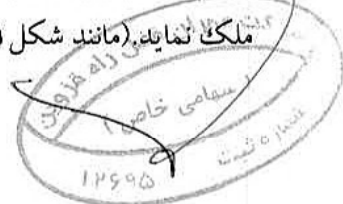 ملک نماید.(مانند شکل
راه قزوین
(سهامی خاص)
شماره ثبت
۱۲۶۹۵